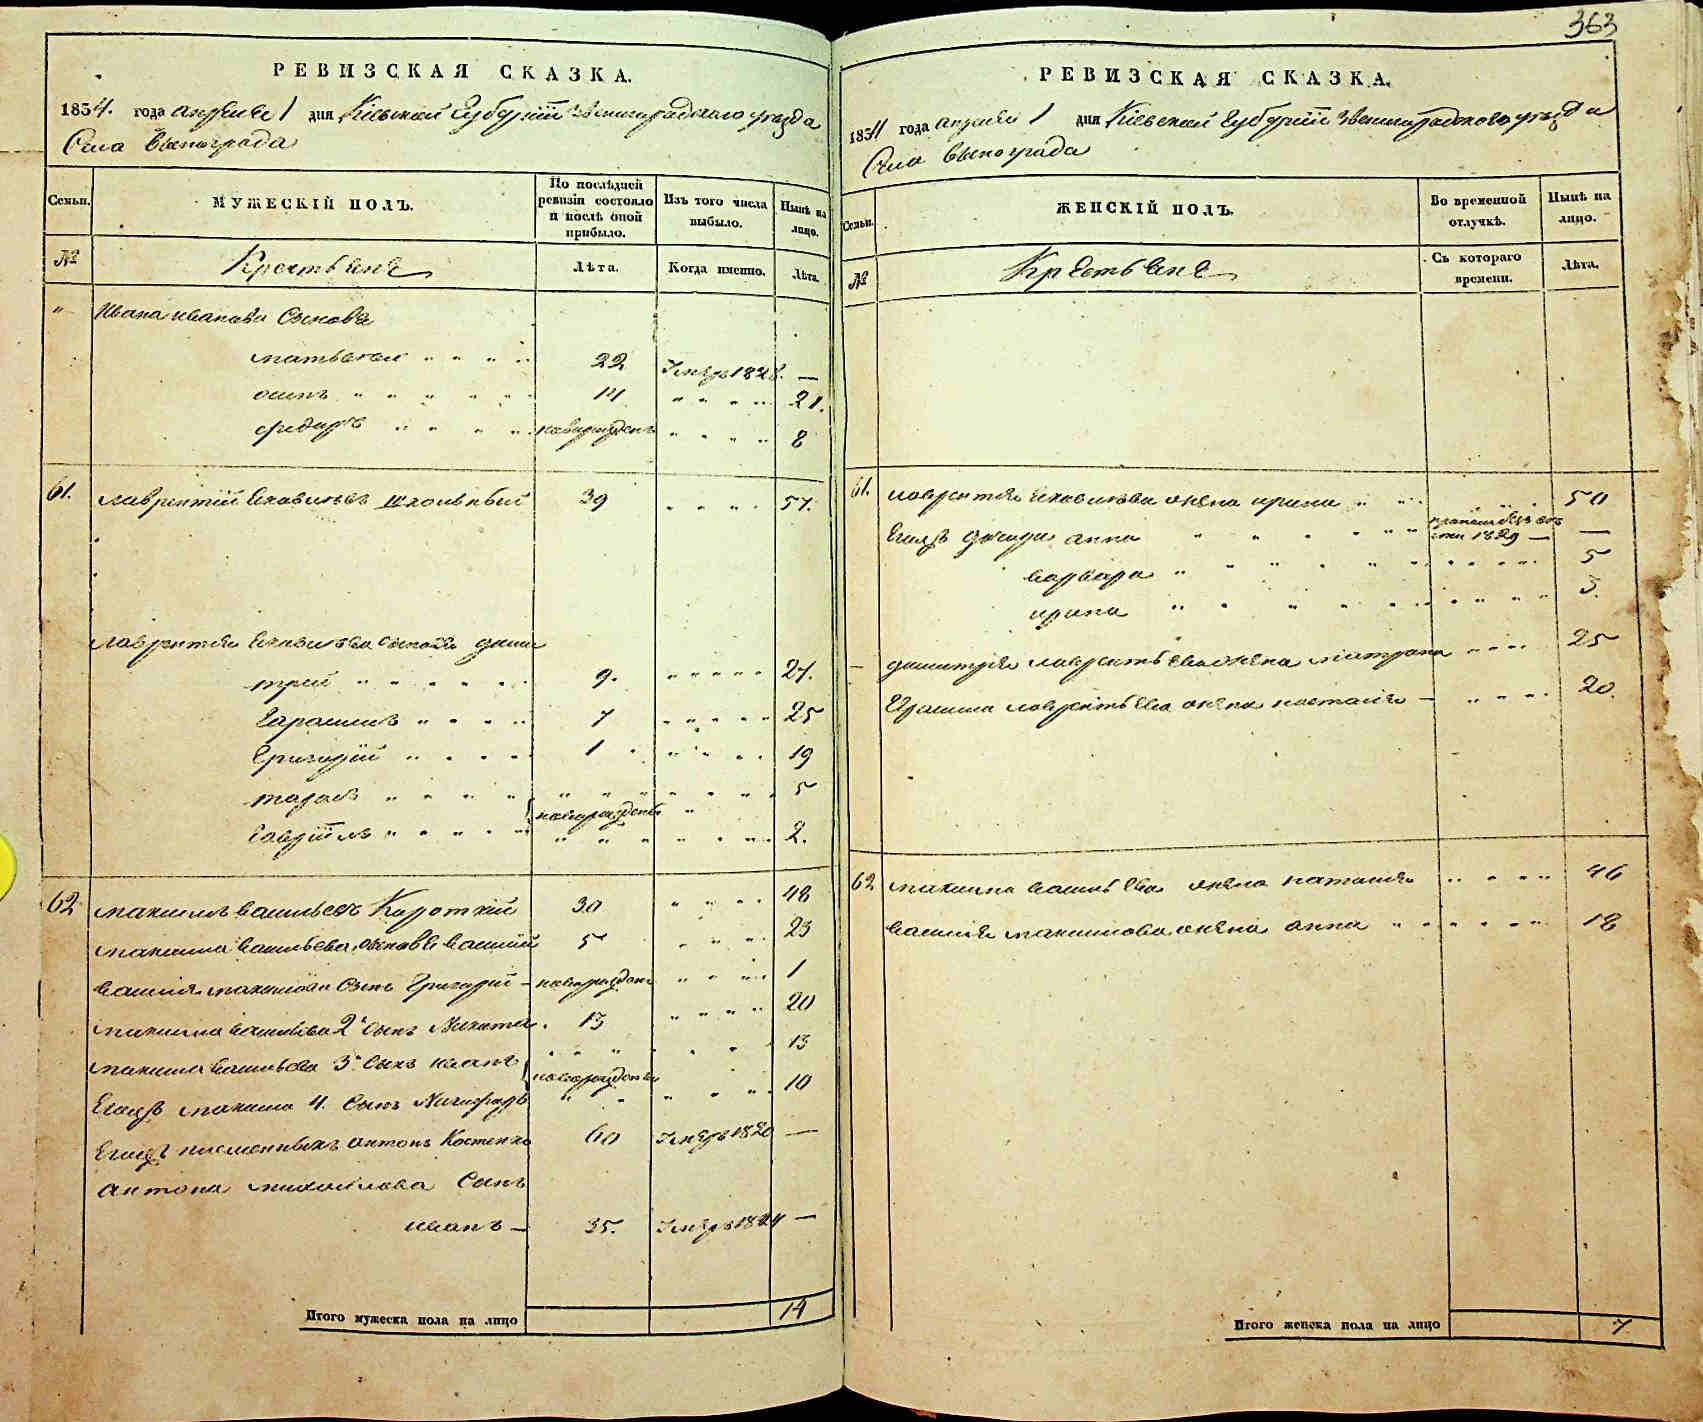 363
РЕВИЗСКАЯ СКАЗКА.
1834. года апреля 1 дня Кіевской Губерніи Звенигородского уезда
Села Винограда
Семьи.
МУЖЕСКІЙ ПОЛЪ.
По послѣдней ревизіи состояло и послѣ оной прибыло.
Изъ того числа выбыло.
Нынѣ на лицо.
№
Крестьяне
Лѣта.
Когда именно.
Лѣта.
" Ивана иванова Сынова
матьвей " " " " 22 Умеръ 1828. —
осипъ " " " " " " 14 " " " " 21.
федиръ " " " " новорожденъ " " " " 8
61. лаврентій 39 " " " " 57.
лаврентія сынова дми
трей " " " " " " 9. " " " " " 27.
Гарасимъ " " " " 7 " " " " " 25
Григорій " " " " 1 " " " " 19
тарасъ " " " " " " " " " " " " 5
новорожденъ "
Гаврііилъ " " " " " " " " " " " " 2.
62 максимъ васильевъ Короткій 30 " " " " 48
максима васильева сыновъ василій 5 " " " 23
василія максимова Сынъ Григорій — новорожденъ " " " " 1
максима васильева 2й сынъ Никита. 13 " " " " 20
максима васильева 3й Сынъ иванъ " " " " " " 13
новорожденъ
Егожъ максима 4. Сынъ " " " " " 10
Егожъ антонъ Костенко 60 Умеръ 1820 —
антона михайлова Сынъ
иванъ — 35. Умеръ 1824 —
Итого мужеска пола на лицо 14
РЕВИЗСКАЯ СКАЗКА.
1834 года апреля 1 дня Кіевской Губерніи Звенигородского уезда
Села Винограда
Семьи.
ЖЕНСКІЙ ПОЛЪ.
Во временной отлучкѣ.
Нынѣ на лицо.
№
Крестьяне
Съ котораго времени.
Лѣта.
61. лаврентія жена ирина " " " " 50
Егожъ дочери анна " " " " " " 1829 — —
варвара " " " " " " " " " " 5
ирина " " " " " " " " " " 3.
— димитрія лаврентьева жена матрона " " " " 25
Герасима лаврентьева жена настасія — " " " " 20.
62 максима васильева жена наталія " " " " 46
василія максимова жена анна " " " " " " " 18
Итого женска пола на лицо 7